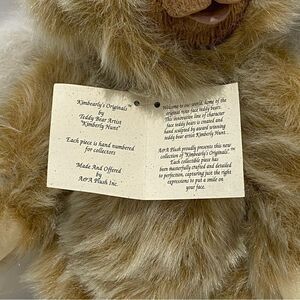 Kimbearly's Originals™
by
Teddy Bear Artist
"Kimberly Hunt"
Each piece is hand numbered
for collectors
Made And Offered
by
A&A Plush Inc.
Welcome to our world, home of the
original rosy face teddy bears.
This innovative line of character
face teddy bears is created and
hand sculpted by award winning
teddy bear artist Kimberly Hunt.
A&A Plush proudly presents this new
collection of "Kimbearly's Originals".™
Each collectible piece has
been masterfully crafted and detailed
to perfection, capturing just the right
expressions to put a smile on
your face.